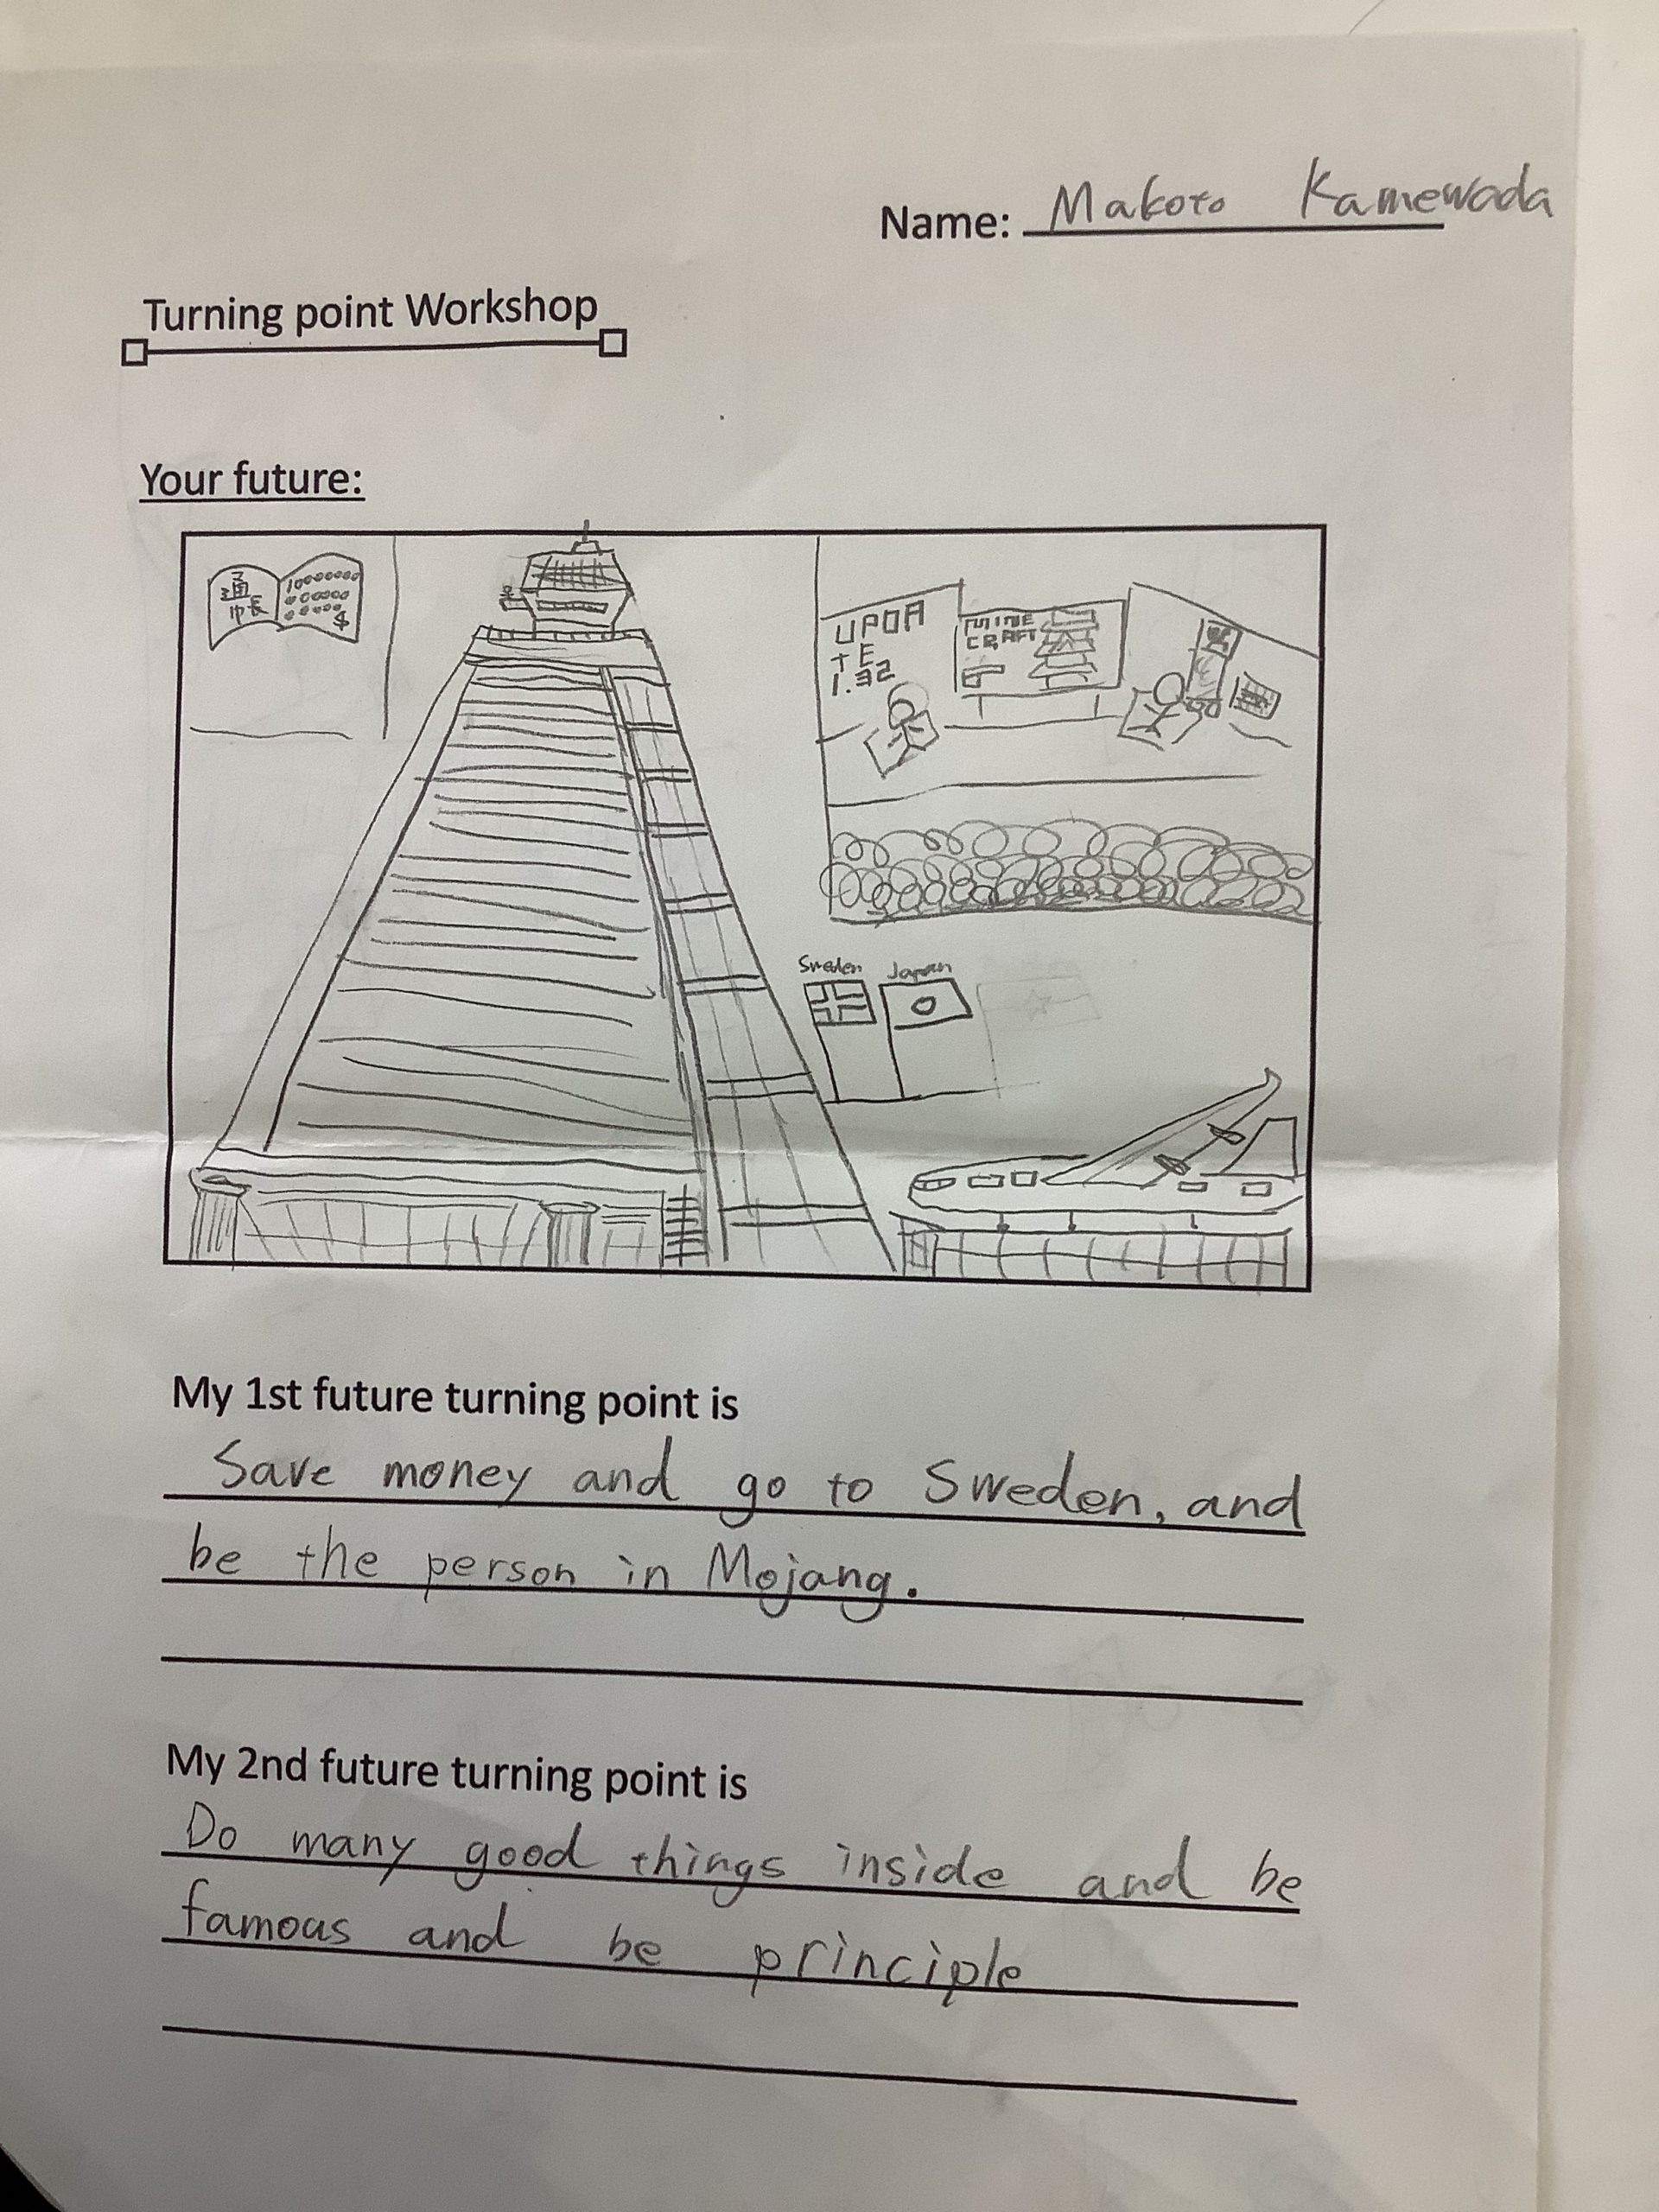 Name: Makoto Kamewada
Turning point Workshop
Your future:
通帳
$
UPDA
TE
1.32
MINE
CRAFT
Sweden Japan
My 1st future turning point is
Save money and go to Sweden, and
be the person in Mojang.
My 2nd future turning point is
Do many good things inside and be
famous and be principle